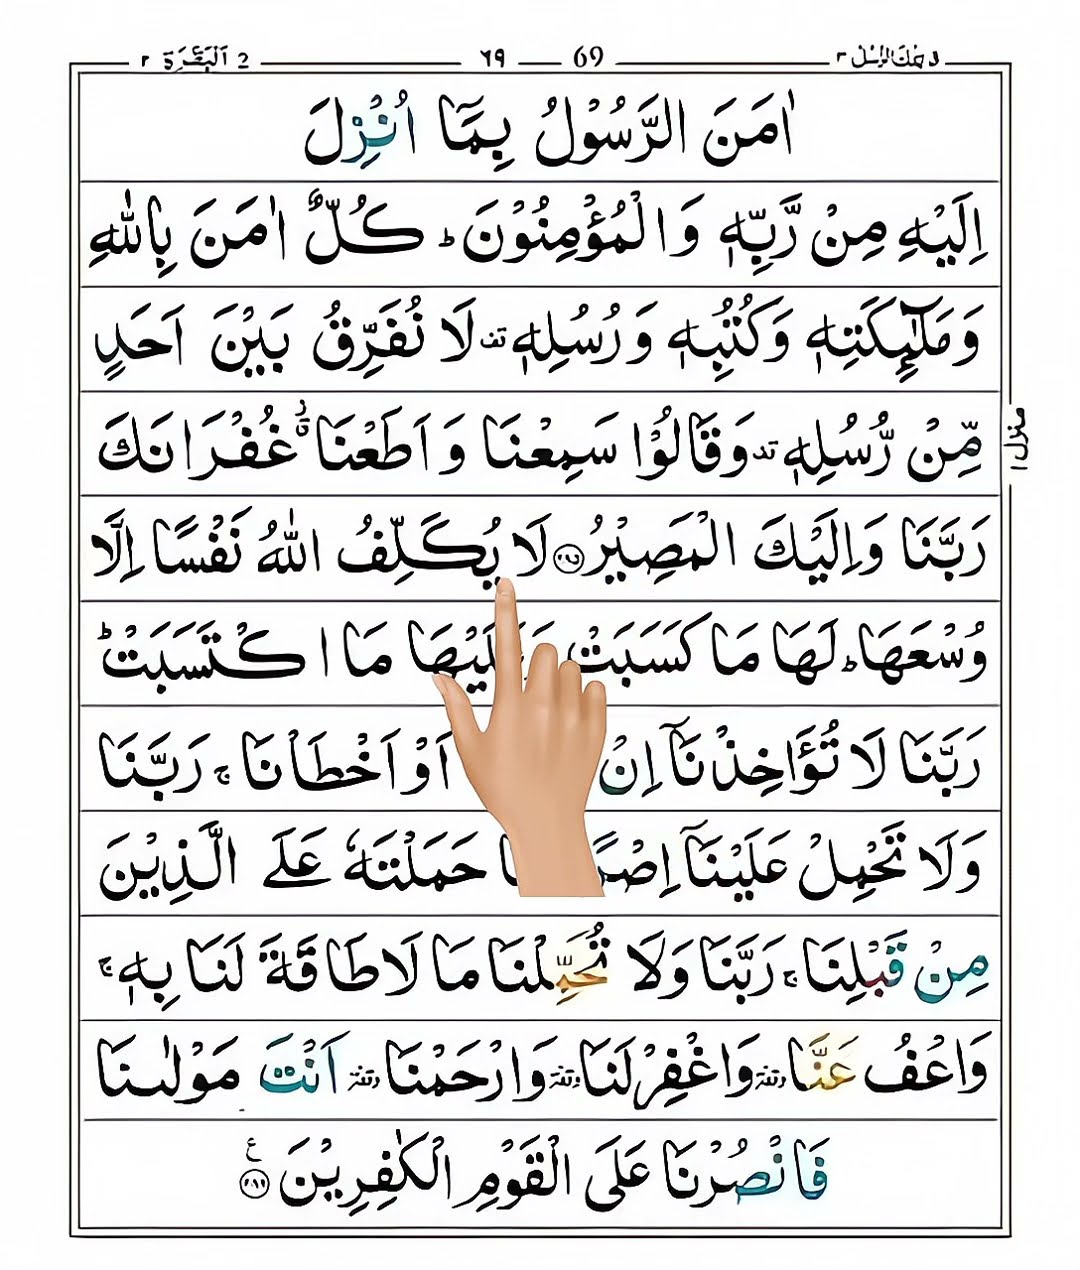 تلك الرسل ٣ ٦٩ 69 2 اَلْبَقَرَة ٢
اٰمَنَ الرَّسُوْلُ بِمَاۤ اُنْزِلَ
اِلَيْهِ مِنْ رَّبِّهٖ وَالْمُؤْمِنُوْنَ ؕ كُلٌّ اٰمَنَ بِاللّٰهِ
وَمَلٰٓئِكَتِهٖ وَكُتُبِهٖ وَرُسُلِهٖ قف لَا نُفَرِّقُ بَيْنَ اَحَدٍ
مِّنْ رُّسُلِهٖ قف وَقَالُوْا سَمِعْنَا وَاَطَعْنَا غُفْرَانَكَ
رَبَّنَا وَاِلَيْكَ الْمَصِيْرُ ۝٢٨٥ لَا يُكَلِّفُ اللّٰهُ نَفْسًا اِلَّا
وُسْعَهَا ؕ لَهَا مَا كَسَبَتْ مَا اكْتَسَبَتْ ؕ
رَبَّنَا لَا تُؤَاخِذْنَاۤ اِنْ اَوْ اَخْطَاْنَا ۚ رَبَّنَا
وَلَا تَحْمِلْ عَلَيْنَاۤ حَمَلْتَهٗ عَلَى الَّذِيْنَ
مِنْ قَبْلِنَا ۚ رَبَّنَا وَلَا تُحَمِّلْنَا مَا لَا طَاقَةَ لَنَا بِهٖ ۚ
وَاعْفُ عَنَّا وقفة وَاغْفِرْ لَنَا وقفة وَارْحَمْنَا وقفة اَنْتَ مَوْلٰىنَا
فَانْصُرْنَا عَلَى الْقَوْمِ الْكٰفِرِيْنَ ۝٢٨٦ ع
منزل ١